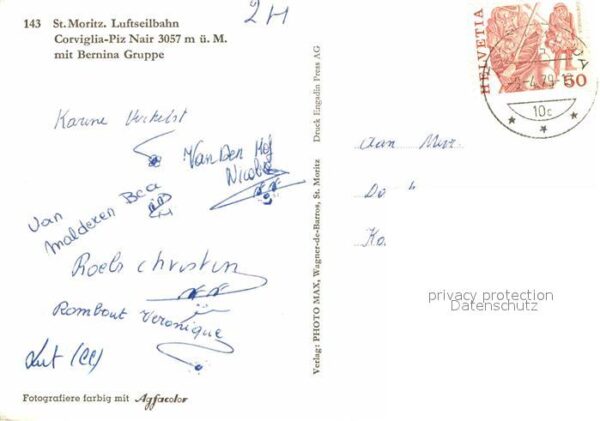 143 St. Moritz. Luftseilbahn
Corviglia-Piz Nair 3057 m ü. M.
mit Bernina Gruppe
2H
HELVETIA
50
10c
Karine Verhelst
Van Den
Nicole
Van
Malderen Bea
Roels Christin
Rombout Veronique
Lut (CC)
Fotografiere farbig mit Agfacolor
Verlag: PHOTO MAX, Wagner-de-Barros, St. Moritz Druck Engadin Press AG
Aan
De "
Ko.
privacy protection
Datenschutz